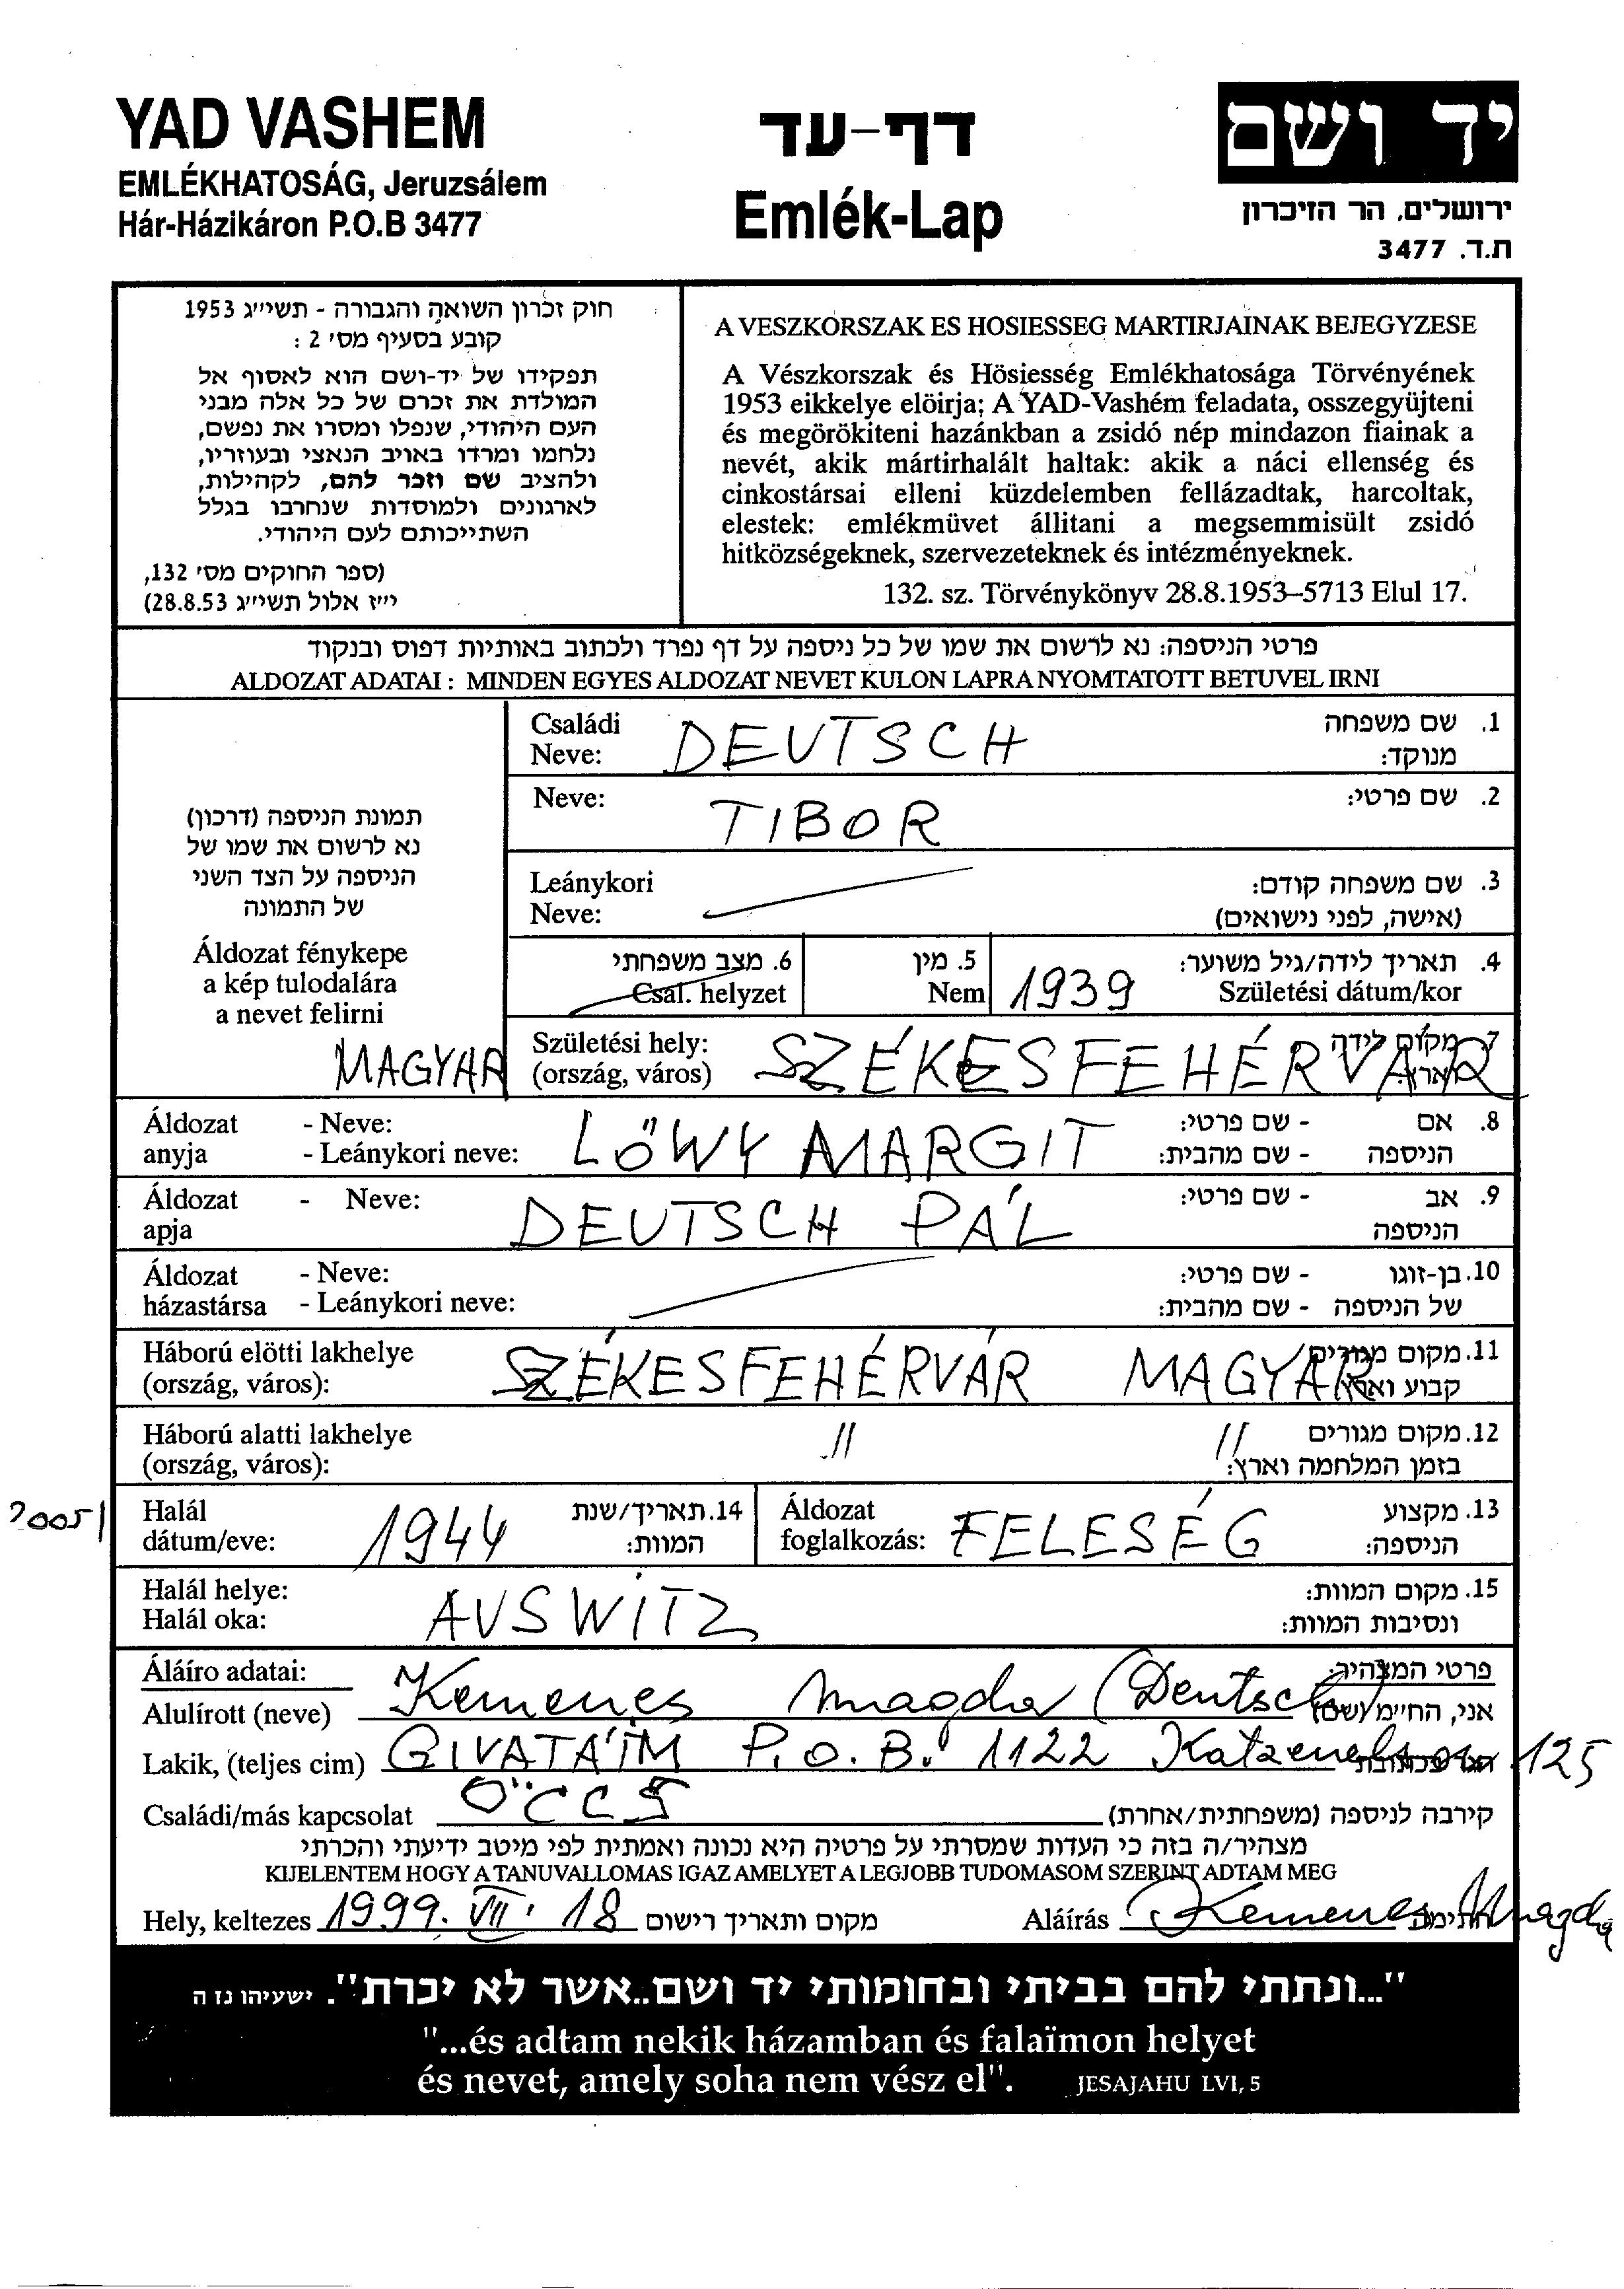 YAD VASHEM
EMLÉKHATOSÁG, Jeruzsálem
Hár-Házikáron P.O.B 3477
דף-עד
Emlék-Lap
יד ושם
ירושלים, הר הזיכרון
ת.ד. 3477
חוק זכרון השואה והגבורה - תשי״ג 1953
קובע בסעיף מס׳ 2 :
תפקידו של יד-ושם הוא לאסוף אל
המולדת את זכרם של כל אלה מבני
העם היהודי, שנפלו ומסרו את נפשם,
נלחמו ומרדו באויב הנאצי ובעוזריו,
ולהציב שם וזכר להם, לקהילות,
לארגונים ולמוסדות שנחרבו בגלל
השתייכותם לעם היהודי.
(ספר החוקים מס׳ 132,
י״ז אלול תשי״ג 28.8.53)
A VESZKORSZAK ES HOSIESSEG MARTIRJAINAK BEJEGYZESE
A Vészkorszak és Hösiesség Emlékhatosága Törvényének
1953 eikkelye elöirja; A YAD-Vashém feladata, osszegyüjteni
és megörökiteni hazánkban a zsidó nép mindazon fiainak a
nevét, akik mártirhalált haltak: akik a náci ellenség és
cinkostársai elleni küzdelemben fellázadtak, harcoltak,
elestek: emlékmüvet állitani a megsemmisült zsidó
hitközségeknek, szervezeteknek és intézményeknek.
132. sz. Törvénykönyv 28.8.1953–5713 Elul 17.
פרטי הניספה: נא לרשום את שמו של כל ניספה על דף נפרד ולכתוב באותיות דפוס ובנקוד
ALDOZAT ADATAI : MINDEN EGYES ALDOZAT NEVET KULON LAPRA NYOMTATOTT BETUVEL IRNI
תמונת הניספה (דרכון)
נא לרשום את שמו של
הניספה על הצד השני
של התמונה
Áldozat fénykepe
a kép tulodalára
a nevet felirni
Családi DEUTSCH 1. שם משפחה
Neve: מנוקד:
Neve: TIBOR 2. שם פרטי:
Leánykori 3. שם משפחה קודם:
Neve: (אישה, לפני נישואים)
6. מצב משפחתי 5. מין 4. תאריך לידה/גיל משוער:
Csal. helyzet Nem 1939 Születési dátum/kor
Születési hely: 7. מקום לידה
MAGYAR (ország, város) SZÉKESFEHÉRVÁR
Áldozat - Neve: LŐWY MARGIT 8. אם - שם פרטי:
anyja - Leánykori neve: הניספה - שם מהבית:
Áldozat - Neve: DEUTSCH PÁL 9. אב - שם פרטי:
apja הניספה
Áldozat - Neve: 10. בן-זוגו - שם פרטי:
házastársa - Leánykori neve: של הניספה - שם מהבית:
Háború elötti lakhelye SZÉKESFEHÉRVÁR MAGYAR 11. מקום מגורים
(ország, város): קבוע וארץ
Háború alatti lakhelye // // 12. מקום מגורים
(ország, város): בזמן המלחמה וארץ:
Halál 14. תאריך/שנת Áldozat 13. מקצוע
dátum/eve: 1944 המוות: foglalkozás: FELESÉG הניספה:
Halál helye: 15. מקום המוות:
Halál oka: AUSWITZ ונסיבות המוות:
Áláíro adatai: פרטי המצהיר:
Alulírott (neve) Kemenes Magda (Deutsch) אני, החי״מ (שם)
Lakik, (teljes cim) GIVATÁIM P.O.B. 1122 Katzenelson 125
Családi/más kapcsolat ÖCCS קירבה לניספה (משפחתית/אחרת)
מצהיר/ה בזה כי העדות שמסרתי על פרטיה היא נכונה ואמתית לפי מיטב ידיעתי והכרתי
KIJELENTEM HOGY A TANUVALLOMAS IGAZ AMELYET A LEGJOBB TUDOMASOM SZERINT ADTAM MEG
Hely, keltezes 1999. VII. 18 מקום ותאריך רישום Aláírás Kemenes Magda חתימה
"...ונתתי להם בביתי ובחומותי יד ושם..אשר לא יכרת". ישעיהו נז ה
"...és adtam nekik házamban és falaïmon helyet
és nevet, amely soha nem vész el". JESAJAHU LVI, 5